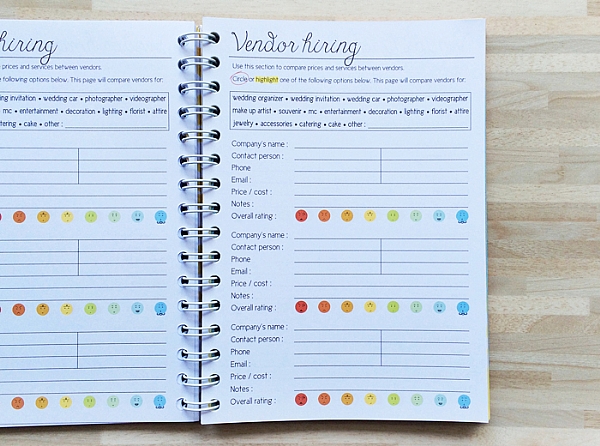 hiring
prices and services between vendors.
following options below. This page will compare vendors for:
wedding invitation • wedding car • photographer • videographer
• mc • entertainment • decoration • lighting • florist • attire
catering • cake • other :
Vendor hiring
Use this section to compare prices and services between vendors.
Circle or highlight one of the following options below. This page will compare vendors for:
wedding organizer • wedding invitation • wedding car • photographer • videographer
make up artist • souvenir • mc • entertainment • decoration • lighting • florist • attire
jewelry • accessories • catering • cake • other :
Company's name :
Contact person :
Phone
Email :
Price / cost :
Notes :
Overall rating :
Company's name :
Contact person :
Phone
Email :
Price / cost :
Notes :
Overall rating :
Company's name :
Contact person :
Phone
Email :
Price / cost :
Notes :
Overall rating :